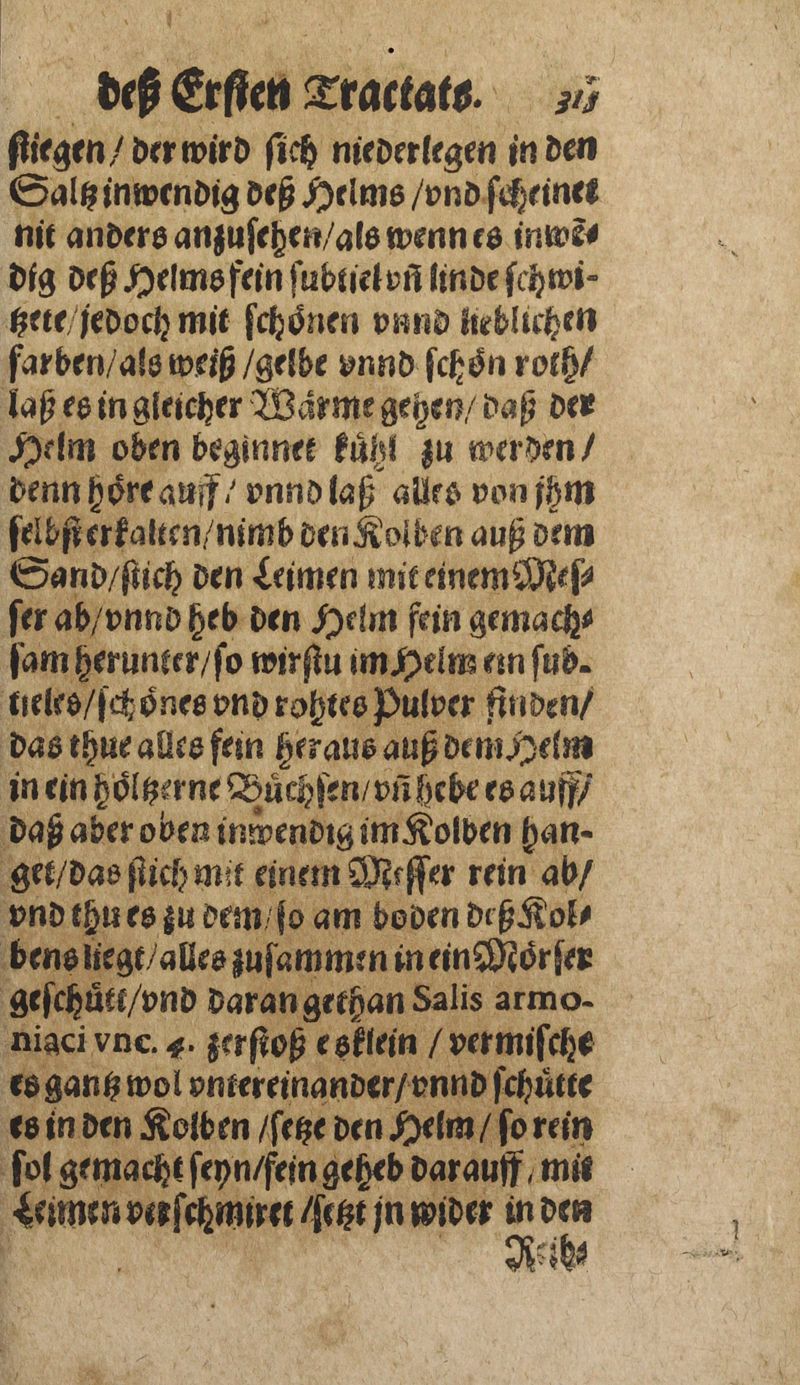 deß Ersten Tractats.
stiegen / der wird sich niederlegen in den
Saltz inwendig deß Helms / vnd scheinet
nit anders anzusehen / als wenn es inwē⸗
dig deß Helms fein subtiel vñ linde schwi-
tzete / jedoch mit schönen vnnd lieblichen
farben / als weiß / gelbe vnnd schön roth /
laß es in gleicher Wärme gehen / daß der
Helm oben beginnet kühl zu werden /
denn höre auff / vnnd laß alles von jhm
selbst erkalten / nimb den Kolben auß dem
Sand / stich den Leimen mit einem Mes⸗
ser ab / vnnd heb den Helm fein gemach⸗
sam herunter / so wirstu im Helm ein sub-
tieles / schönes vnd rohtes Pulver finden /
das thue alles fein heraus auß dem Helm
in ein höltzerne Büchsen / vñ hebe es auff /
daß aber oben inwendig im Kolben han-
get / das stich mit einem Messer rein ab /
vnd thu es zu dem / so am boden deß Kol⸗
bens liegt / alles zusammen in ein Mörser
geschütt / vnd daran gethan Salis armo-
niaci vnc. 4. zerstoß es klein / vermische
es gantz wol vntereinander / vnnd schütte
es in den Kolben / setze den Helm / so rein
sol gemacht seyn / fein geheb darauff, mit
Leimen verschmiret / setzt jn wider in den
Reib⸗